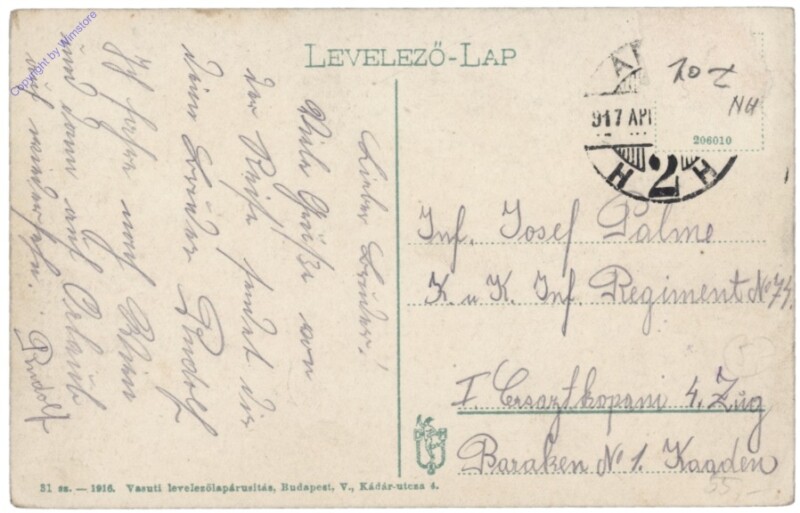 Copyright by Wimstore
LEVELEZŐ-LAP
917 API
H 2 H
206010
NH
Lieber Bruder!
Viele Grüße von
der Reise sendet dir
dein Bruder Rudolf
Ich fahre nach Wien
und dann auf Urlaub
auf wiedersehn.
Rudolf
Inf. Josef Palme
K. u K. Inf. Regiment No 74.
I. Ersatzkopani 4. Zug
Baraken No 1. Kaaden
55.-
31 sz. — 1916. Vasuti levelezőlapárusitás, Budapest, V., Kádár-utcza 4.